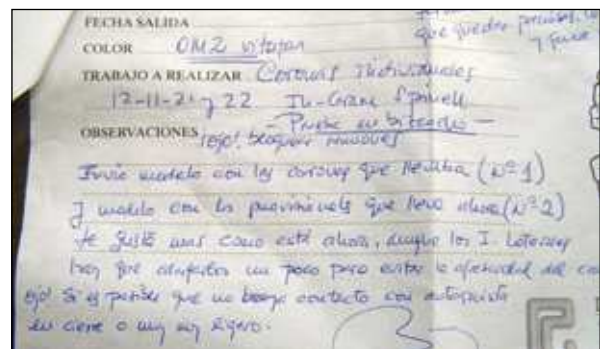 FECHA SALIDA
que queden
y
COLOR OM2 vitapan
TRABAJO A REALIZAR Coronas Individuales
12-11-21 y 22 In-Ceram Spinell
- Prueba en bizcocho -
OBSERVACIONES ¡ojo! bloquear
Envio modelo con las coronas que llevaba (nº 1)
y modelo con los provisionales que lleva ahora (nº 2)
te gusta mas como está ahora, aunque los I. Laterales
hay que un poco para evitar la del
ojo! Si es posible que no haya contacto con antagonista
en cierre o muy muy ligero.